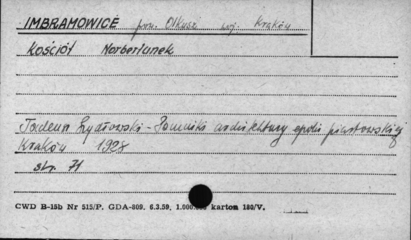 IMBRAMOWICE pow. Olkusz woj. Kraków
Kościół Norbertanek
Tadeusz Szydłowski - Pomniki architektury epoki piastowskiej
Kraków 1928
str. 71
CWD B-15b Nr 515/P. GDA-809. 6.3.59. 1.000.000 karton 180/V.